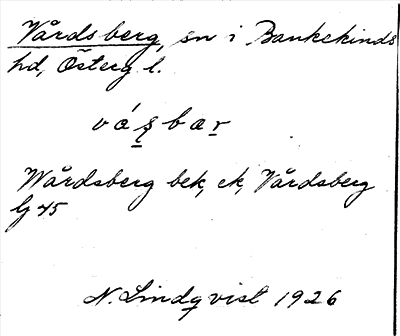 Vårdsberg, sn i Bankekinds
hd, Österg l.
vá̱ʂ̱bar̲
Wårdsberg bek, ek, Vårdsberg
Gg 45
N. Lindqvist 1926